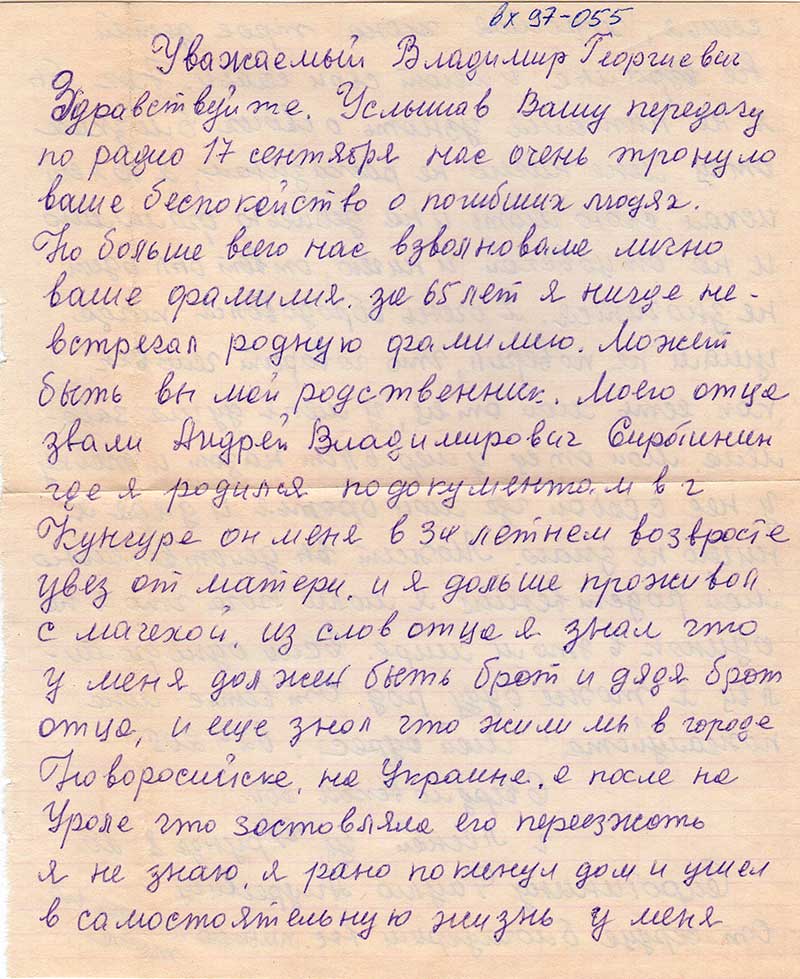 вх 97-055
Уважаемый Владимир Георгиевич
Здравствуйте. Услышав Вашу передачу
по радио 17 сентября нас очень тронуло
ваше беспокойство о погибших людях.
Но больше всего нас взволновала лично
ваше фамилия, за 65 лет я нигде не-
встречал родную фамилию. Может
быть вы мой родственник. Моего отца
звали Андрей Владимирович Сиротинин
где я родился подокументам в г
Кунгуре он меня в 3х летнем возвросте
увез от матери, и я дольше проживал
с мачехой, из слов отца я знал что
у меня должен быть брат и дядя брат
отца, и еще знал что жили мы в городе
Новоросийске, на Украине, а после на
Урале что заставляла его переезжать
я не знаю, я рано покинул дом и ушел
в самостоятельную жизнь у меня